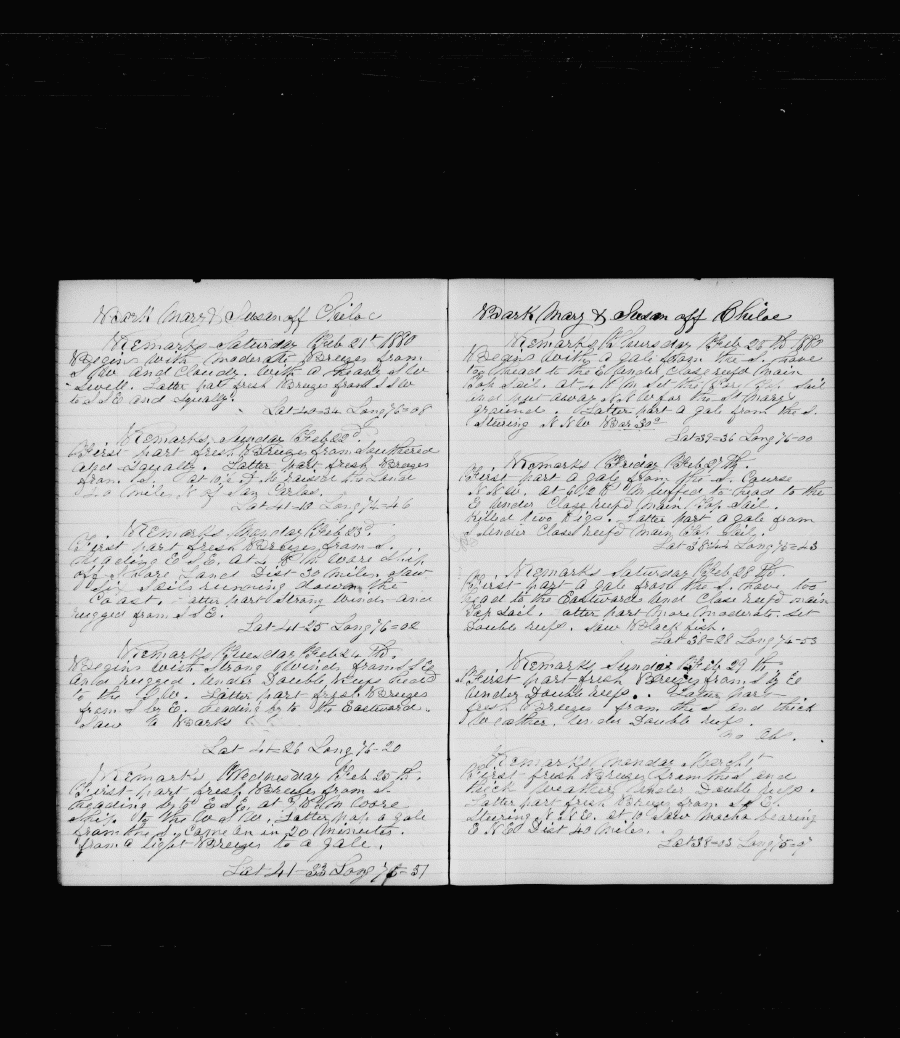 Bark Mary & Susan off Chiloe
Remarks Saturday Feb 21st 1880
Begins with moderate Breezes from
S W and Cloudy. With a heavy S W
Swell. Latter part fresh Breezes from S S W
to S S E and Squally.
Lat 40=34 Long 76=08
Remarks Sunday Feb 22d.
First part fresh Breezes from Southered
and Squally. Latter part fresh Breezes
from S. at M raised the Land
miles N of San Carlos.
Lat 41=40 Long 74=46
Remarks Monday Feb 23d.
First part fresh Breezes from S.
Heading E S E. at 4 P M Wore Ship
off Shore Land Dist 30 miles. Saw
Six Sails running down the
Coast. Latter part Strong Winds and
rugged from S S E.
Lat 41=25 Long 76=02
Remarks Tuesday Feb 24 Th.
Begins with Strong Winds from S S E
and rugged. Under Double Reefs head
to the S.W. Latter part fresh Breezes
from S by E. heading by to the Eastward.
Saw Barks
Lat 41=26 Long 76=20
Remarks, Wednesday Feb 25 Th.
First part fresh Breezes from S.
heading by E S E, at P M Wore
Ship to the W S W. Latter part a gale
from the S. Came on in 20 minutes
from a light Breeze to a gale.
Lat 41=33 Long 75=37
Bark Mary & Susan off Chiloe
Remarks Thursday Feb 26 Th 1880
Begins with a gale from the S. hove
too head to the E under Close reefd Main
Top Sail. at 4 P M Set the Fore Top Sail
and put away N.N W for the St Marys
ground. Latter part a gale from the S.
Stering N N W Bar 30°
Lat 39=36 Long 76=00
Remarks Friday Feb 27 Th.
First part a gale from the S. Course
N.N.W. at P M luffed to head to the
E Under Close reefd Main Top Sail.
Killed two Pigs. Latter part a gale from
S. Under Close reefd Main Top Sail.
Lat 38=44 Long 75=43
Remarks Saturday Feb 28 Th
First part a gale from the S. hove too
head to the Eastwards and Close reefd main
Top Sail. Latter part More Moderate. Set
Double reefs. Saw Black fish.
Lat 38=28 Long 74=53
Remarks Sunday Feb 29 th.
First part fresh Breezes from S by E
Under Double reefs. Latter part
fresh Breezes from the S and thick
Weather. Under Double reefs.
No Obs.
Remarks Monday March 1st
First fresh Breezes from the S and
thick Weather Under Double reefs.
Latter part fresh Breezes from S by E.
Steering N N E. at Saw Mocha bearing
Dist 40 miles.
Lat 38=33 Long